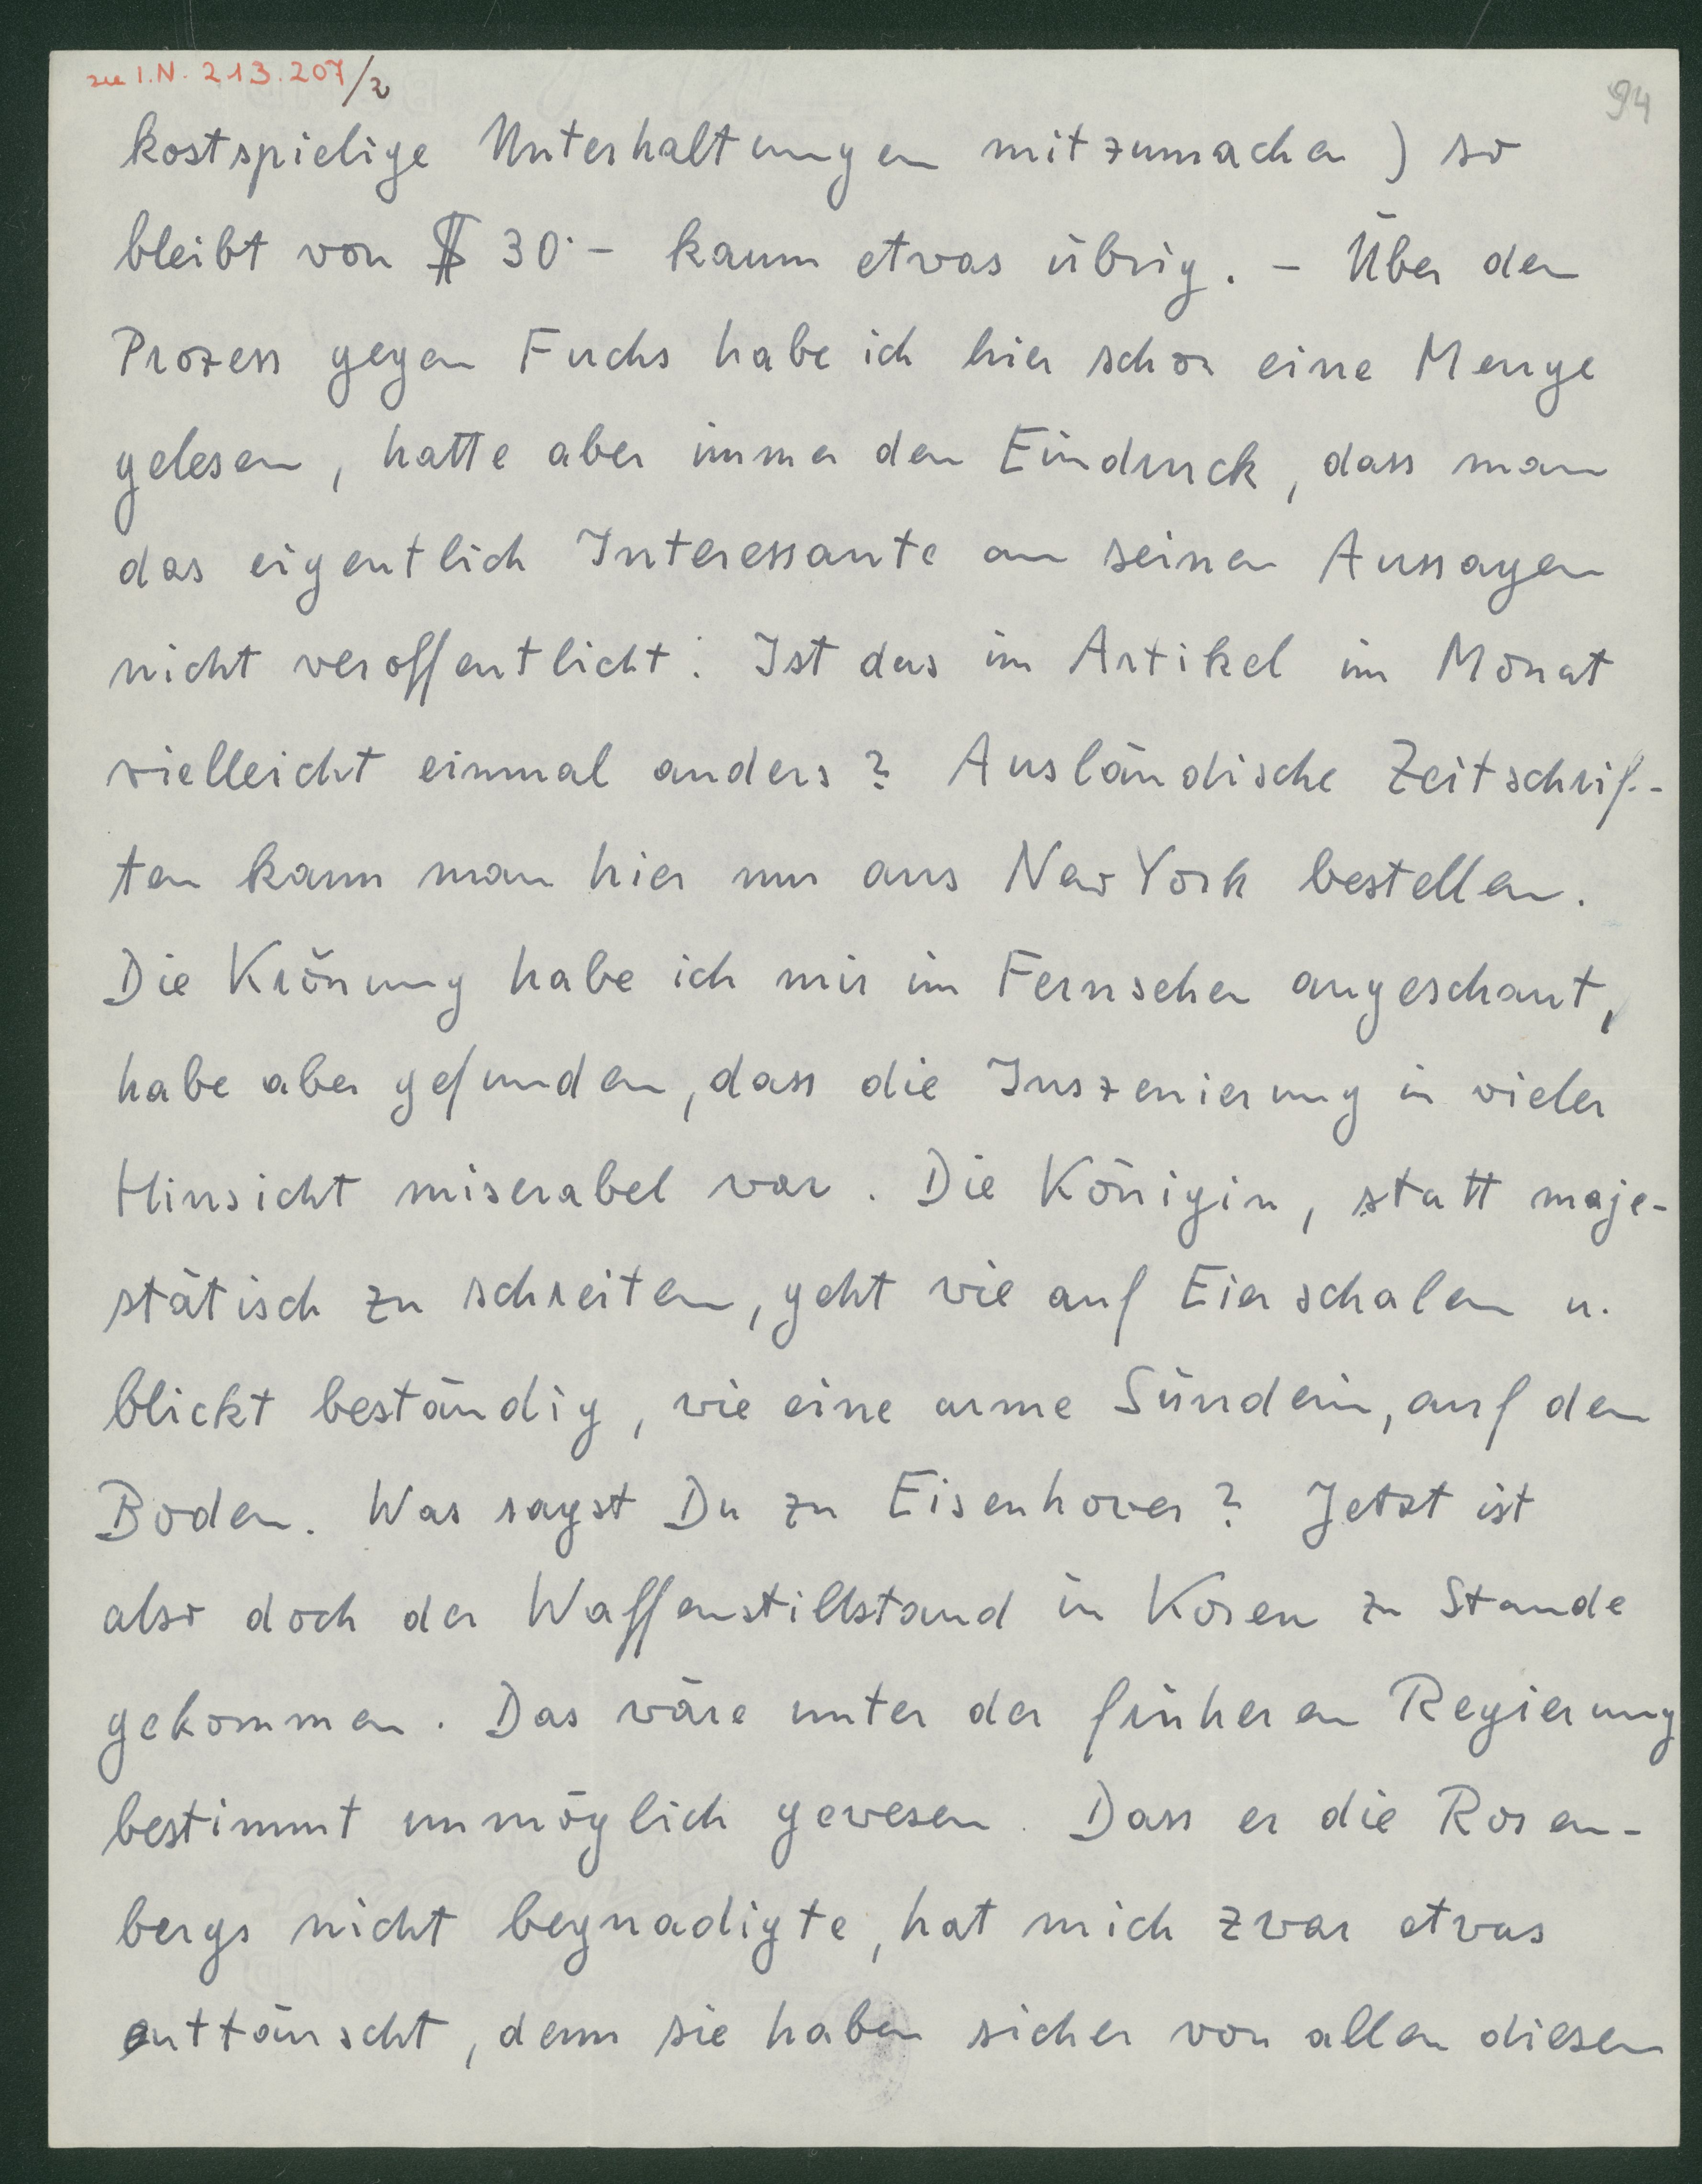 zu I.N. 213.207/2
94
kostspielige Unterhaltungen mitzumachen) so
bleibt von $ 30.- kaum etwas übrig. - Über den
Prozess gegen Fuchs habe ich hier schon eine Menge
gelesen, hatte aber immer den Eindruck, dass man
das eigentlich Interessante an seinen Aussagen
nicht veröffentlicht. Ist das im Artikel im Monat
vielleicht einmal anders? Ausländische Zeitschrif-
ten kann man hier nur aus New York bestellen.
Die Krönung habe ich mir im Fernsehen angeschaut,
habe aber gefunden, dass die Inszenierung in vieler
Hinsicht miserabel war. Die Königin, statt maje-
stätisch zu schreiten, geht wie auf Eierschalen u.
blickt beständig, wie eine arme Sünderin, auf den
Boden. Was sagst Du zu Eisenhower? Jetzt ist
also doch der Waffenstillstand in Korea zu Stande
gekommen. Das wäre unter der früheren Regierung
bestimmt unmöglich gewesen. Dass er die Rosen-
bergs nicht begnadigte, hat mich zwar etwas
enttäuscht, denn sie haben sicher von allen diesen